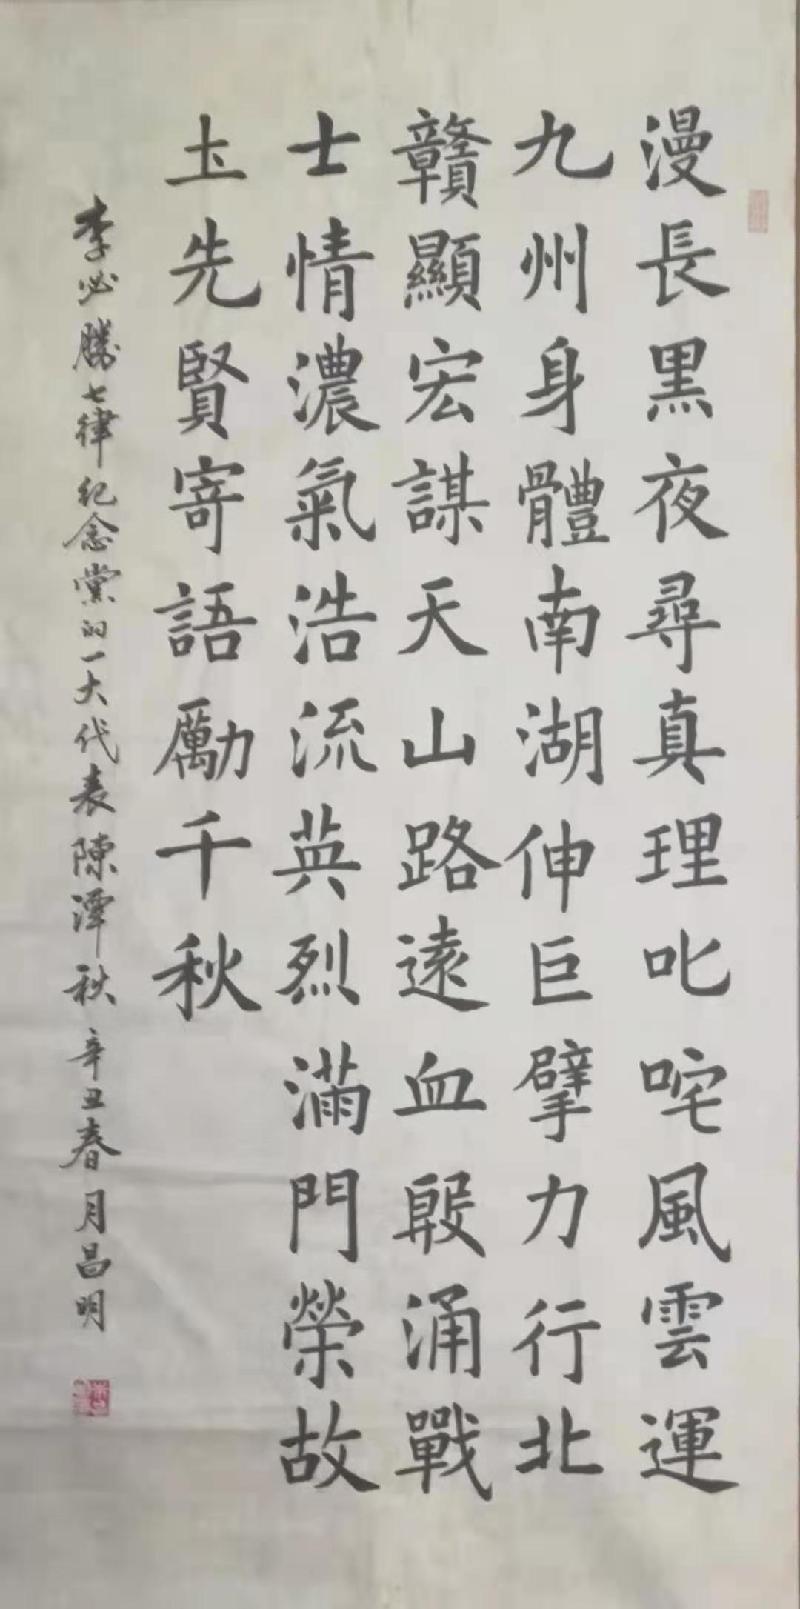 漫長黑夜尋真理叱咤風雲運
九州身體南湖伸巨擘力行北
贛顯宏謀天山路遠血殷涌戰
士情濃氣浩流英烈滿門榮故
圡先賢寄語勵千秋
李必勝七律纪念黨的一大代表陳潭秋 辛丑春月昌明